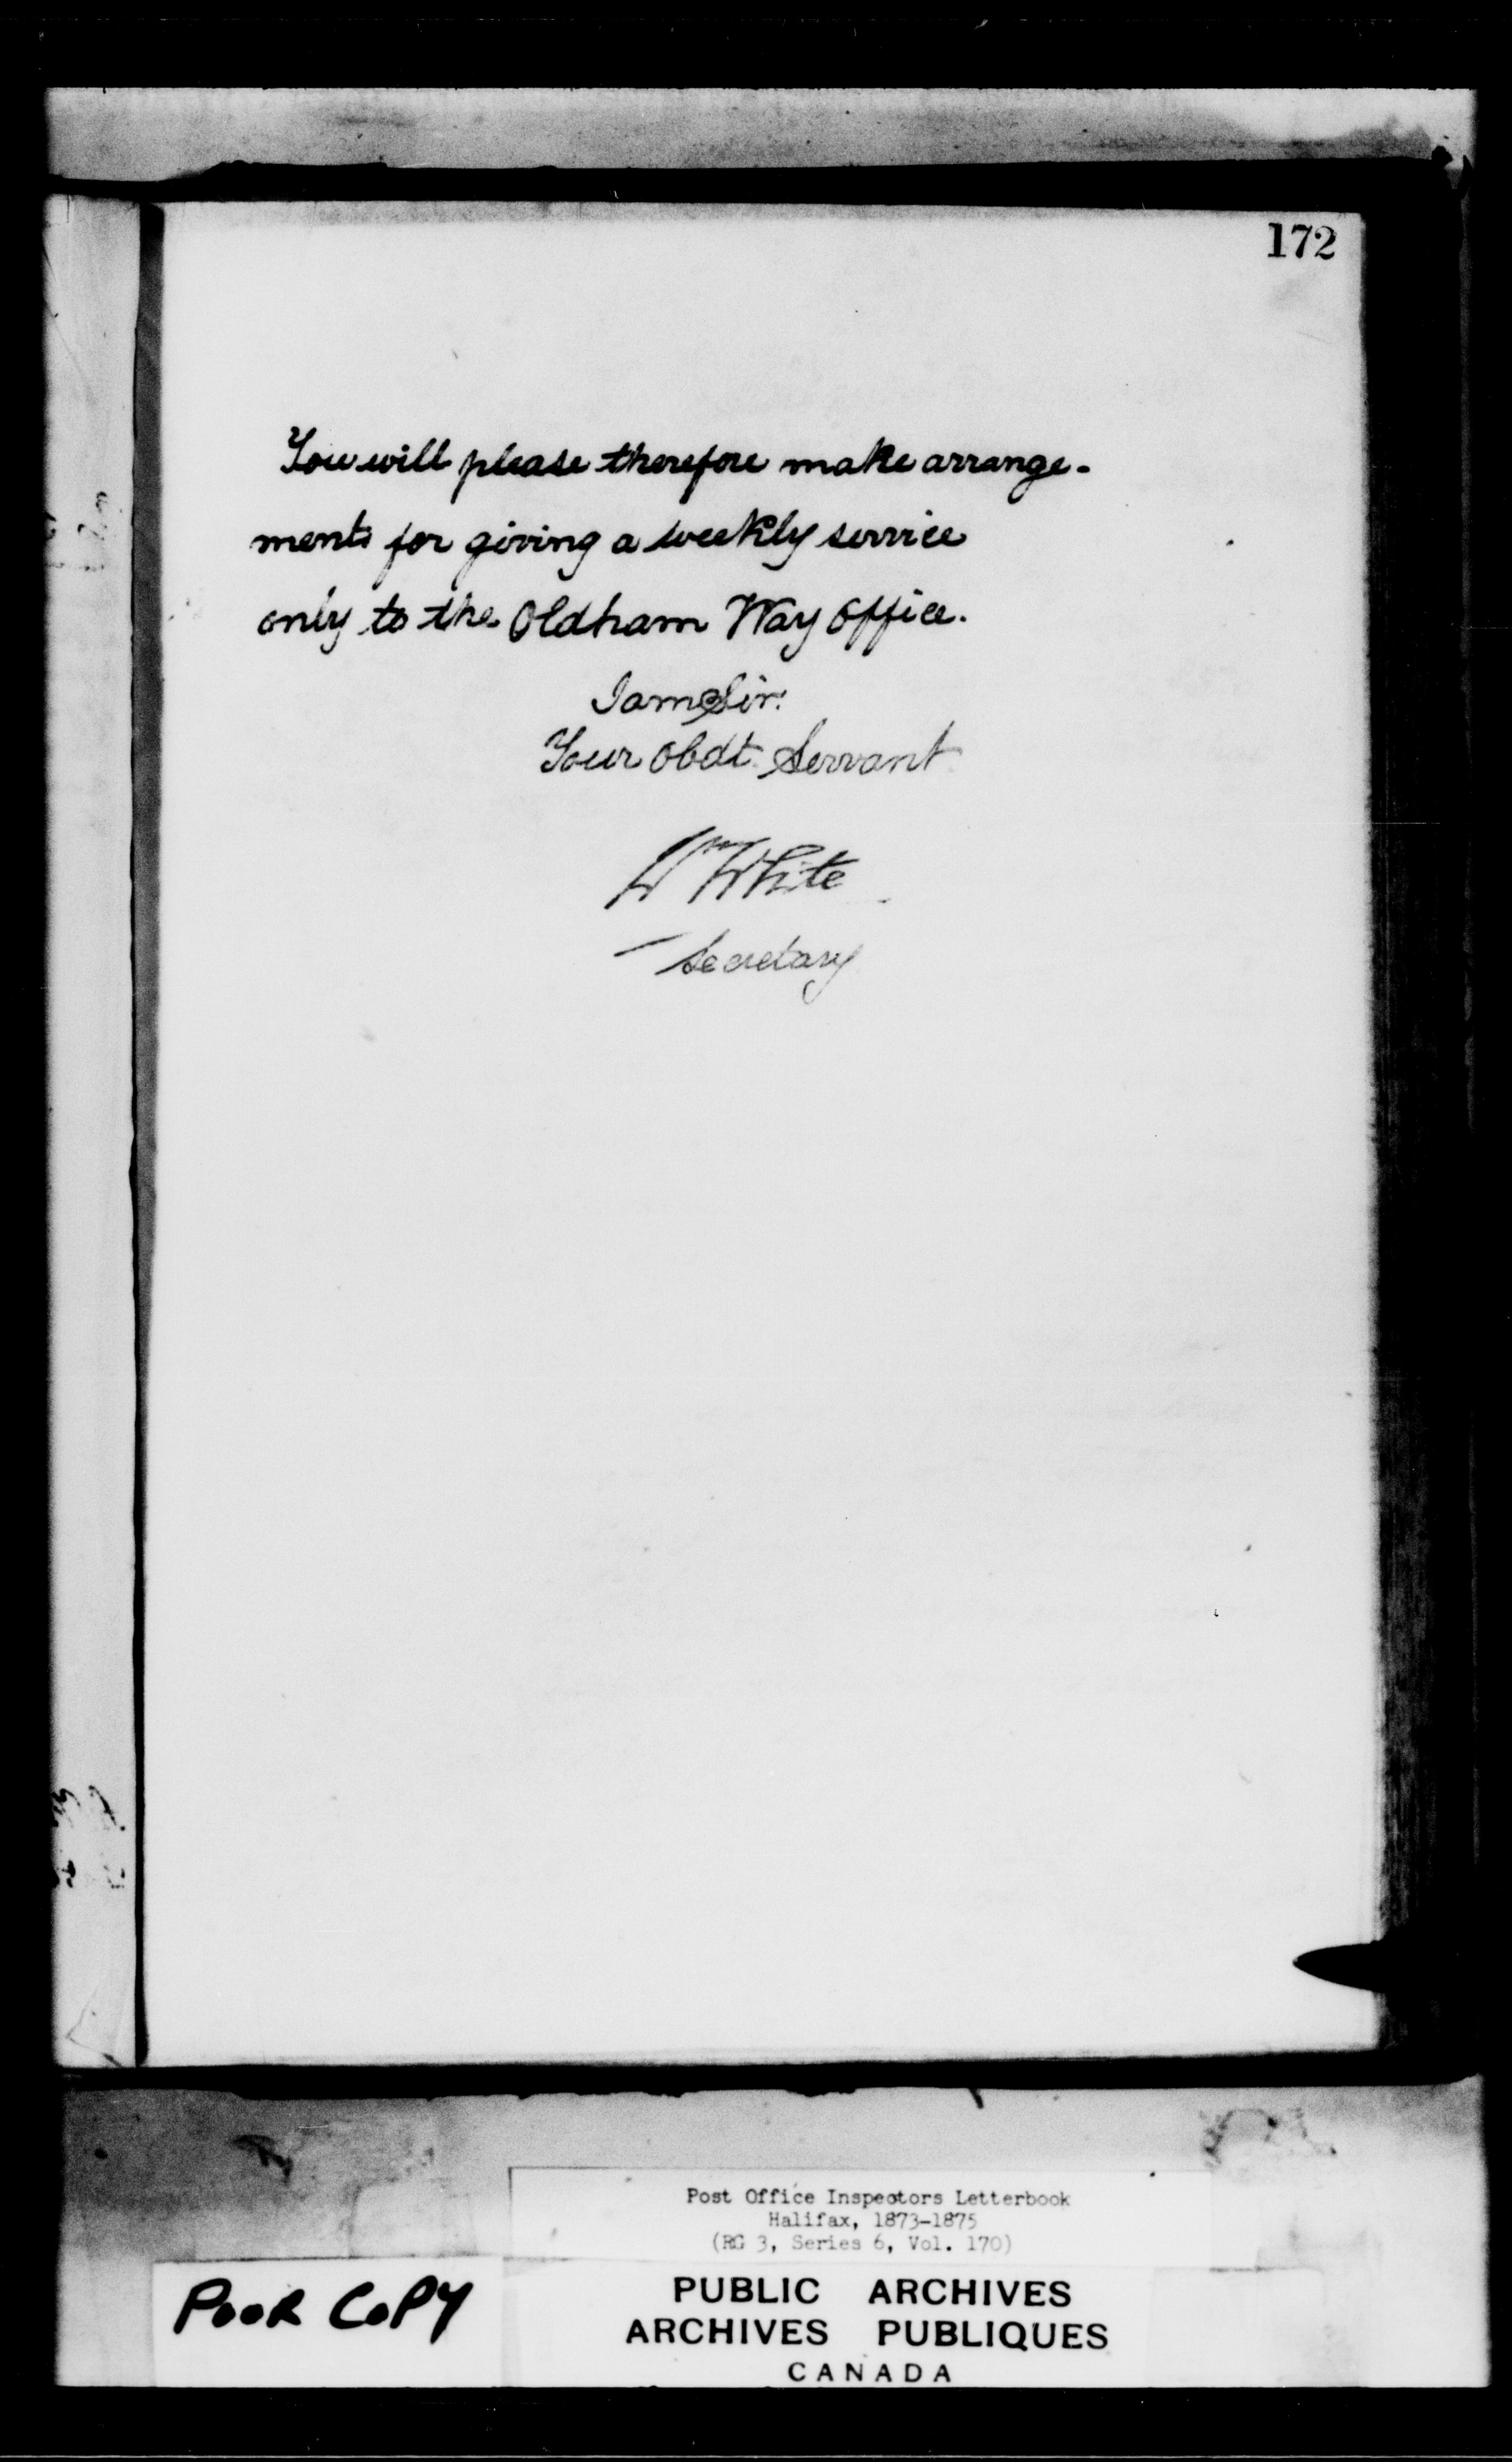 172
You will please therefore make arrange-
ments for giving a weekly service
only to the Oldham Way Office.
I am Sir.
Your Obdt. Servant
Wm White
Secretary
Post Office Inspectors Letterbook
Halifax, 1873-1875
(RG 3, Series 6, Vol. 170)
POOR COPY
PUBLIC ARCHIVES
ARCHIVES PUBLIQUES
CANADA